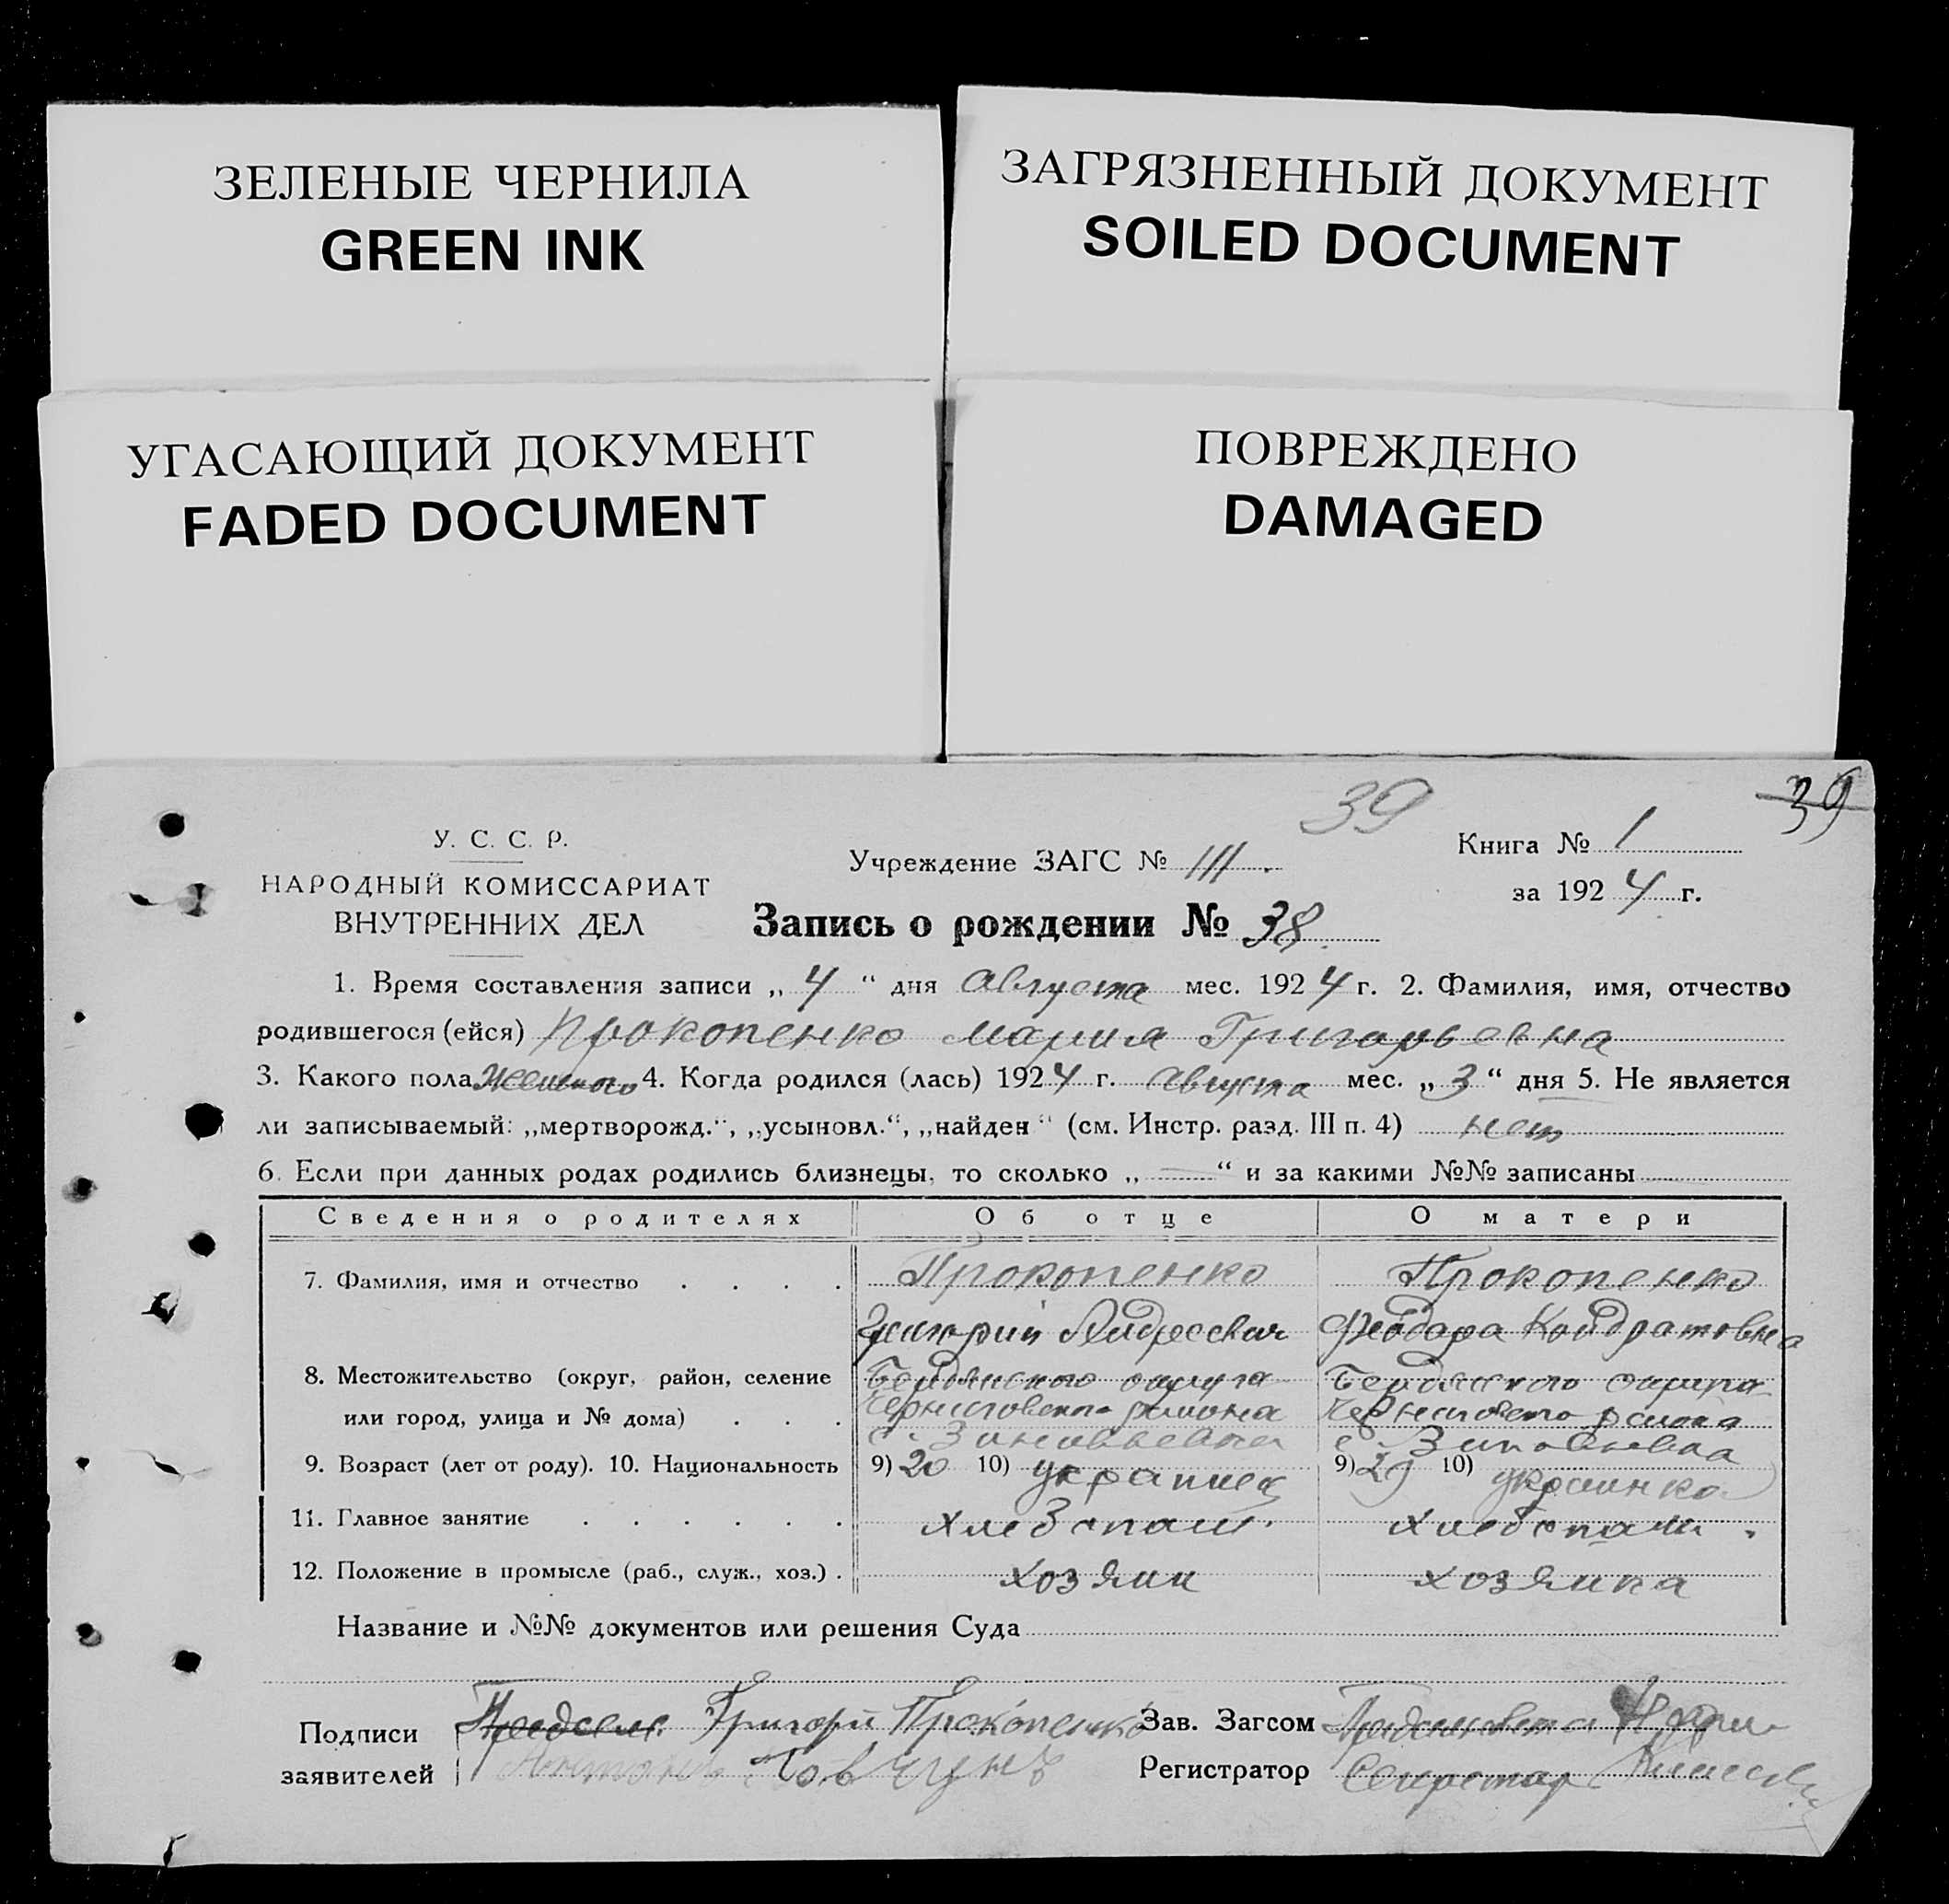 ЗЕЛЕНЫЕ ЧЕРНИЛА
GREEN INK
ЗАГРЯЗНЕННЫЙ ДОКУМЕНТ
SOILED DOCUMENT
УГАСАЮЩИЙ ДОКУМЕНТ
FADED DOCUMENT
ПОВРЕЖДЕНО
DAMAGED
39
39
У. С. С. Р.
НАРОДНЫЙ КОМИССАРИАТ
ВНУТРЕННИХ ДЕЛ
Учреждение ЗАГС № III.
Книга № 1
за 1924 г.
Запись о рождении № 38
1. Время составления записи „ 4 “ дня Августа мес. 1924 г. 2. Фамилия, имя, отчество
родившегося (ейся) Прокопенко Мария Григорьевна
3. Какого пола Женского 4. Когда родился (лась) 1924 г. Августа мес. „ 3 “ дня 5. Не является
ли записываемый: „мертворожд.“, „усыновл.“, „найден“ (см. Инстр. разд. III п. 4) нет
6. Если при данных родах родились близнецы, то сколько „ — “ и за какими №№ записаны
Сведения о родителях Об отце О матери
7. Фамилия, имя и отчество . . . . Прокопенко Прокопенко
Григорий Андреевич Феодора Кондратовна
8. Местожительство (округ, район, селение Бердянского округа Бердянского округа
или город, улица и № дома) . . . Черниговского района Черниговского района
с.
с.
9. Возраст (лет от роду). 10. Национальность 9) 20 10) украинец 9) 10) украинка
11. Главное занятие . . . . . . хлебопаш. хлебопаш.
12. Положение в промысле (раб., служ., хоз.) . хозяин хозяйка
Название и №№ документов или решения Суда
Подписи Григорий Прокопенко Зав. Загсом
заявителей Регистратор Секретарь